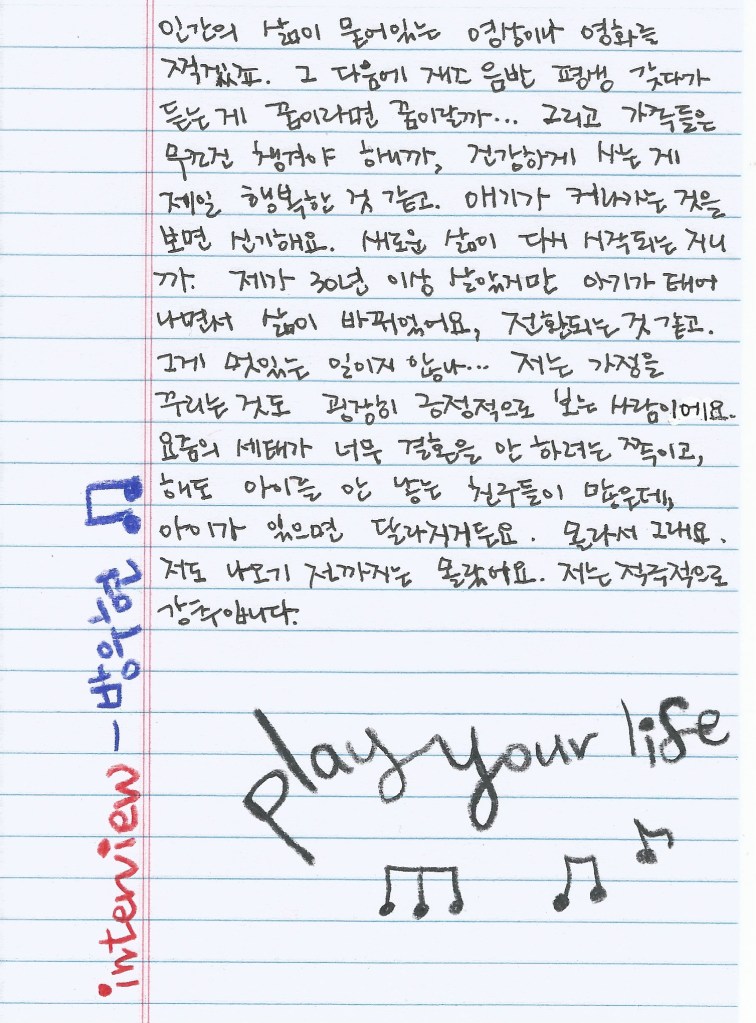 인간의 삶이 묻어있는 영상이나 영화를
찍겠죠. 그 다음에 재즈 음반 평생 갖다가
듣는 게 꿈이라면 꿈이랄까... 그리고 가족들은
무조건 챙겨야 하니까, 건강하게 사는 게
제일 행복한 것 같고. 애기가 커나가는 것을
보면 신기해요. 새로운 삶이 다시 시작되는 거니
까. 제가 30년 이상 살았지만 아기가 태어
나면서 삶이 바뀌었어요, 전환되는 것 같고.
그게 멋있는 일이지 않나... 저는 가정을
꾸리는 것도 굉장히 긍정적으로 보는 사람이에요.
요즘의 세태가 너무 결혼을 안 하려는 쪽이고,
해도 아이를 안 낳는 친구들이 많은데,
아이가 있으면 달라지거든요. 몰라서 그래요.
저도 나오기 전까지는 몰랐어요. 저는 적극적으로
강추입니다.
interview - 방우현
play your life